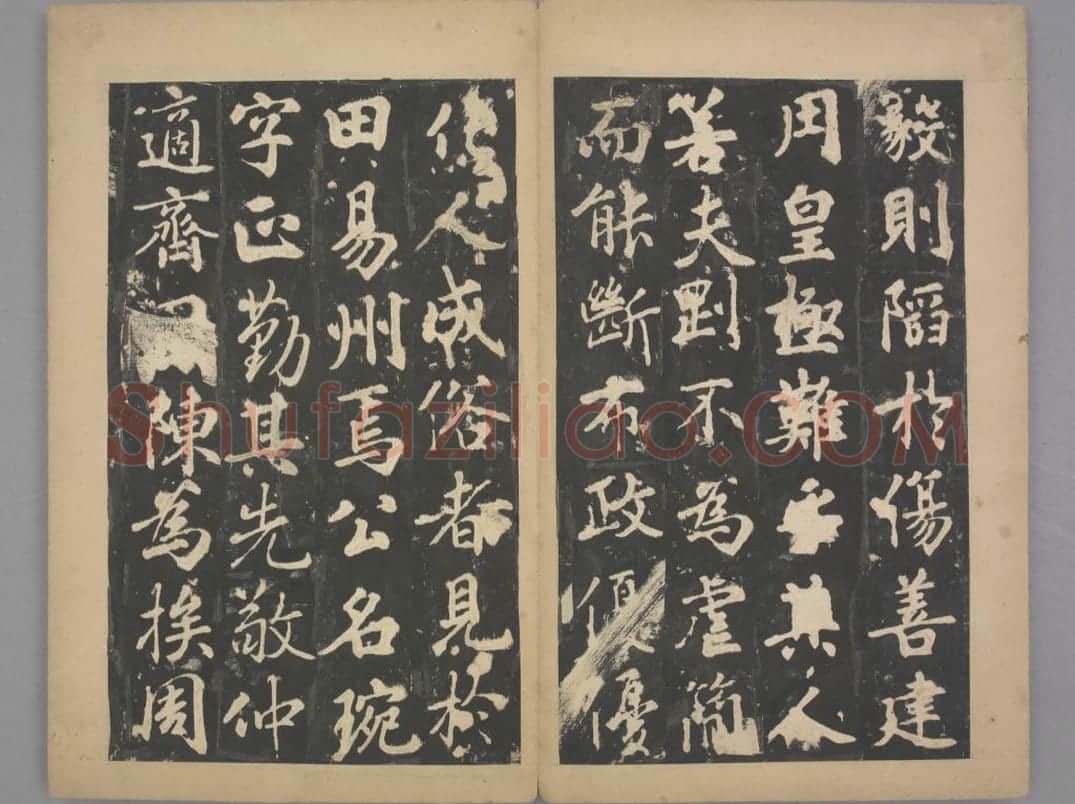 毅則陷於傷善建
用皇極難乎其人
若夫剛不為虐簡
而能斷布政優優
化人成俗者見於
田易州焉公名琬
字正勤其先敬仲
適齊陳為族周
Shufaziliao.COM